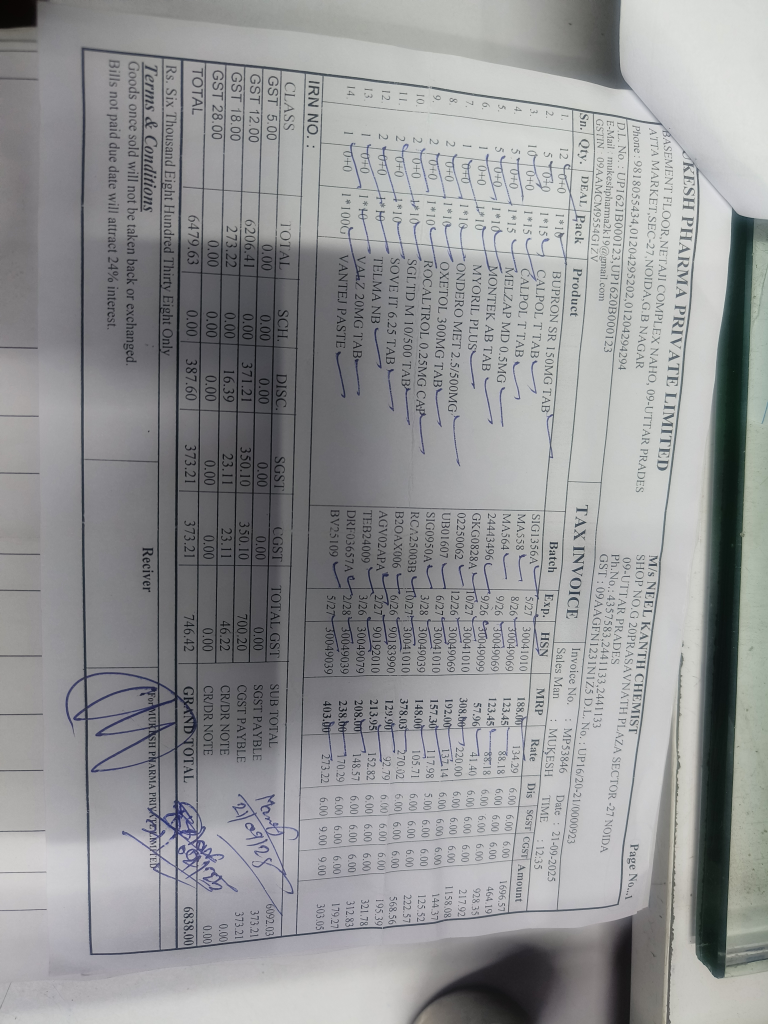 KESH PHARMA PRIVATE LIMITED
BASEMENT FLOOR,NETAJI COMPLEX NAHO, 09-UTTAR PRADES
ATTA MARKET,SEC-27,NOIDA,G.B NAGAR
Phone : 9818055434,01204295202,01204294294
D.L. No. : UP1621B000123,UP1620B000123
E-Mail mukeshpharma2k19@gmail.com
GSTIN 09AAMCM9554G1ZV
Page No..1
M/s NEEL KANTH CHEMIST
SHOP NO.G 20PRASAVNATH PLAZA SECTOR -27 NOIDA
09-UTTAR PRADES
Ph.No.: 4357583,2441133,2441133
GST : 09AAGFN1231N1Z5 D.L. No. : UP16/20-21/0000923
TAX INVOICE
Invoice No. : MP53846 Date : 21-09-2025
Sales Man : MUKESH TIME : 12:35
Sn. Qty. DEAL Pack Product Batch Exp HSN MRP Rate Dis SGST CGST Amount
1. 12 0+0 1*10 BUPRON SR 150MG TAB SIG1356A 5/27 30041010 188.00 134.29 6.00 6.00 6.00 1696.57
2. 5 0+0 1*15 CALPOL T TAB MA558 8/26 30049069 123.45 88.18 6.00 6.00 6.00 464.19
3. 10 0+0 1*15 CALPOL T TAB MA564 9/26 30049069 123.45 88.18 6.00 6.00 6.00 928.35
4. 5 0+0 1*15 MELZAP MD 0.5MG 24443496 9/26 30049099 57.96 41.40 6.00 6.00 6.00 217.92
5. 5 0+0 1*10 MONTEK AB TAB GKG0828A 10/27 30041010 308.00 220.00 6.00 6.00 6.00 1158.08
6. 1 0+0 1*10 MYORIL PLUS 02250062 12/26 30049069 192.00 137.14 6.00 6.00 6.00 144.37
7. 1 0+0 1*10 ONDERO MET 2.5/500MG UB01607 6/27 30041010 157.30 117.98 5.00 6.00 6.00 125.52
8. 2 0+0 1*10 OXETOL 300MG TAB SIG0950A 3/28 30049039 148.00 105.71 6.00 6.00 6.00 222.57
9. 2 0+0 1*10 ROCALTROL 0.25MG CAP RCA25003B 10/27 30041010 378.03 270.02 6.00 6.00 6.00 568.56
10. 2 0+0 1*10 SGLTD M 10/500 TAB B2OAX006 6/26 90183990 129.90 92.79 6.00 6.00 6.00 195.39
11. 2 0+0 1*10 SOVE IT 6.25 TAB AGV02APA 2/27 90192010 213.95 152.82 6.00 6.00 6.00 321.78
12 2 0+0 1*10 TELMA NB TEB24009 3/26 30049079 208.00 148.57 6.00 6.00 6.00 312.83
13 1 0+0 1*10 VAAZ 20MG TAB DRF03657A 2/28 30049039 170.29 6.00 6.00 6.00 179.27
14 1 0+0 1*100G VANTEJ PASTE BV25109 5/27 30049039 403.00 273.22 6.00 9.00 9.00 303.05
IRN NO. :
CLASS TOTAL SCH. DISC. SGST CGST TOTAL GST SUB TOTAL 6092.03
GST 5.00 0.00 0.00 0.00 0.00 0.00 0.00 SGST PAYBLE 373.21
GST 12.00 6206.41 0.00 371.21 350.10 350.10 700.20 CGST PAYBLE 373.21
GST 18.00 273.22 0.00 16.39 23.11 23.11 46.22 CR/DR NOTE 0.00
GST 28.00 0.00 0.00 0.00 0.00 0.00 0.00 CR/DR NOTE 0.00
TOTAL 6479.63 0.00 387.60 373.21 373.21 746.42 GRAND TOTAL 6838.00
Rs. Six Thousand Eight Hundred Thirty Eight Only
Terms & Conditions
Goods once sold will not be taken back or exchanged.
Bills not paid due date will attract 24% interest.
Reciver
For MUKESH PHARMA PRIVATE LIMITED